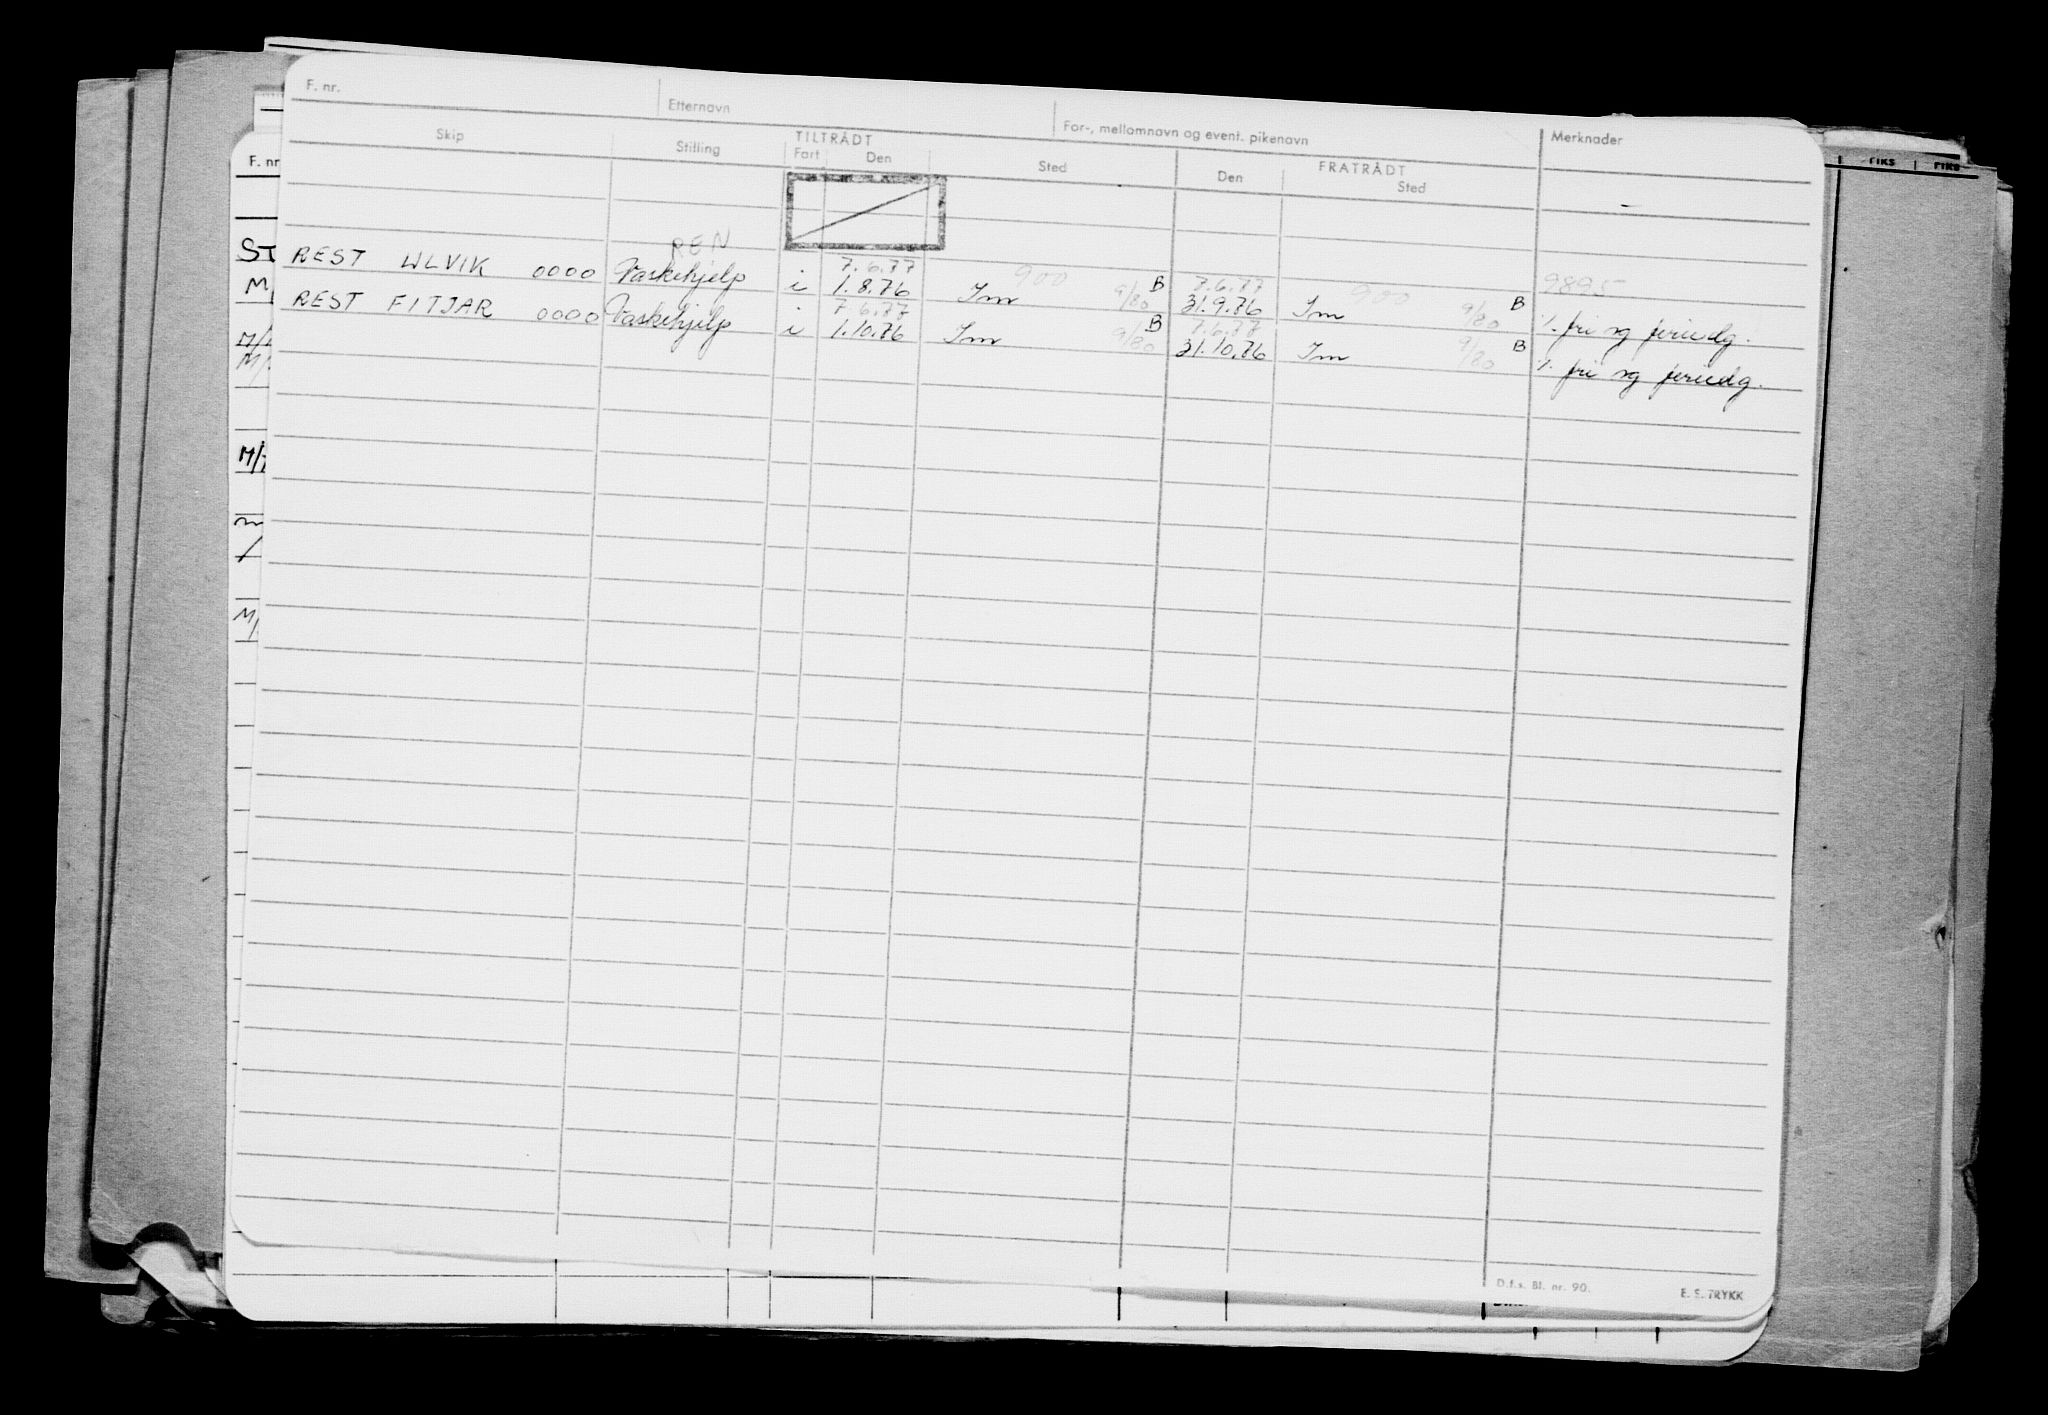 F. nr. Etternavn For-, mellomnavn og event. pikenavn Merknader
Skip Stilling TILTRÅDT FRATRÅDT
Fart Den Sted Den Sted
F. nr
FIKS FIKS
REN 7.6.77 900 7.6.77 900 9895
ST REST ULVIK 0000 Vaskehjelp i 1.8.76 Im 9/80 B 31.9.76 Im 9/80 B %. fri og feriedg.
7.6.77 7.6.77
M REST FITJAR 0000 Vaskehjelp i 1.10.76 Im 9/80 B 31.10.76 Im 9/80 B %. fri og feriedg.
M/
M/
M/
M/
D.f.s. Bl. nr. 90. E. S. TRYKK